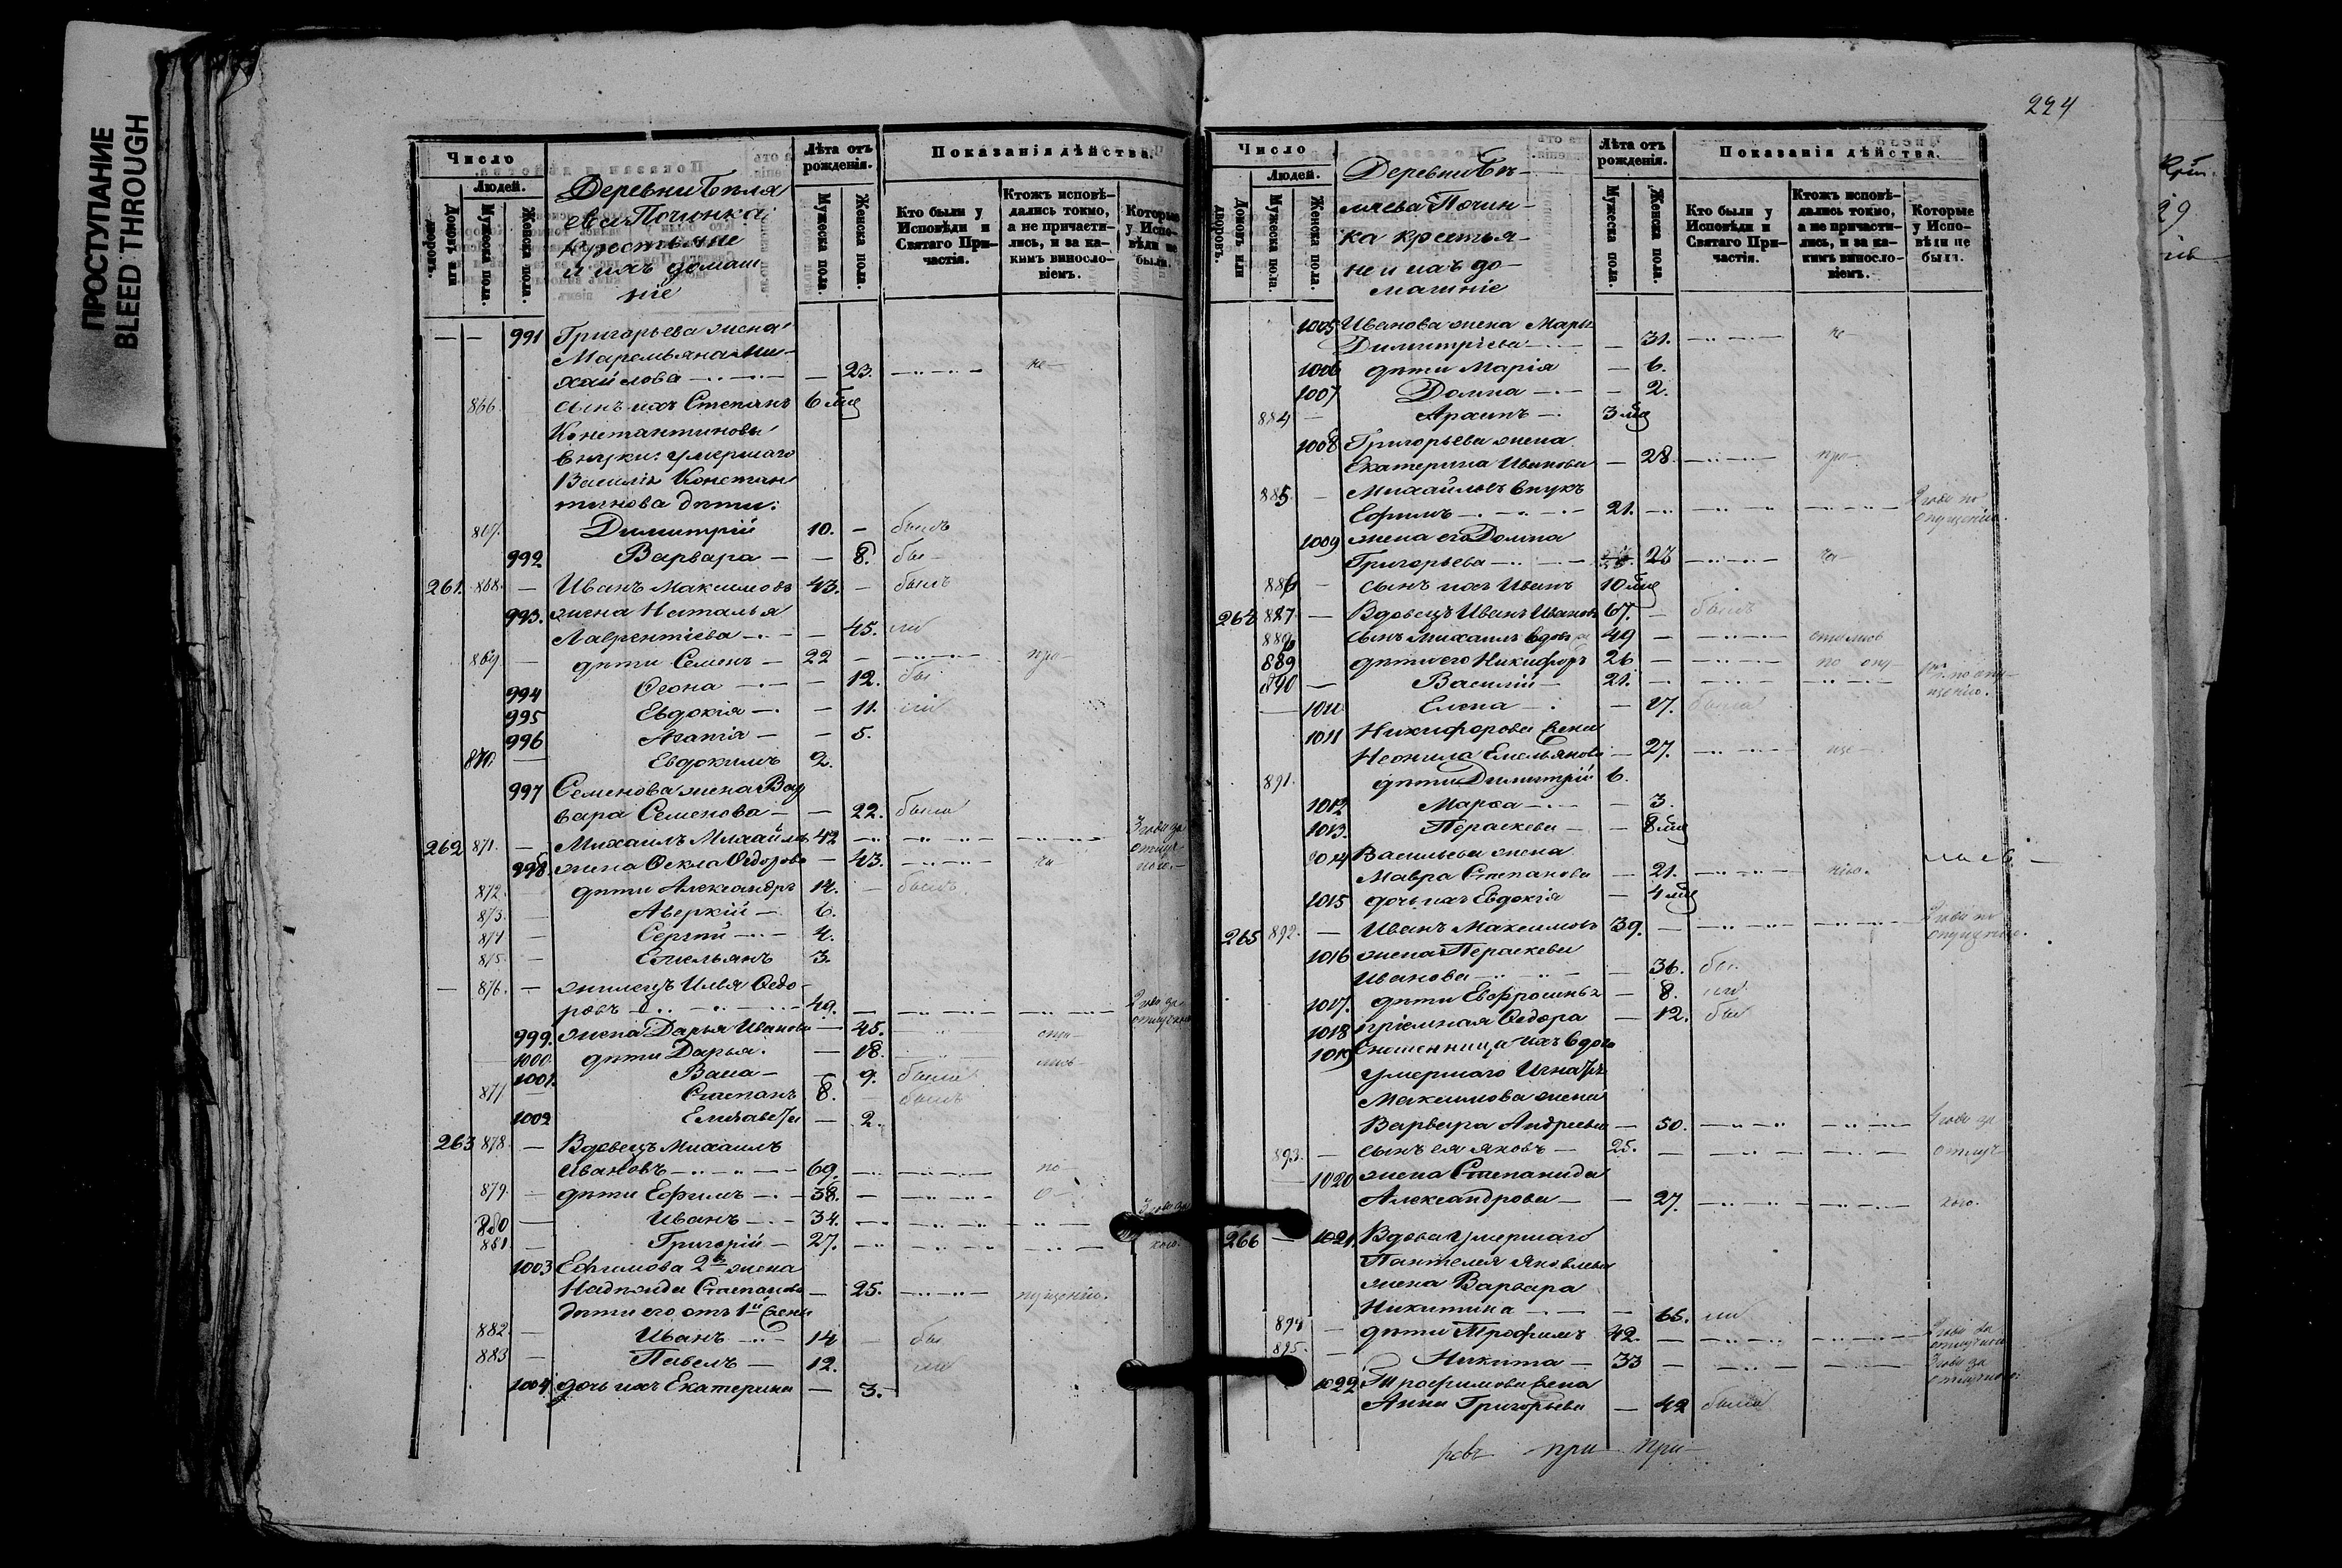 ПРОСТУПАНИЕ
BLEED THROUGH
Число
Людей.
Домовъ или дворовъ.
Мужеска пола.
Женска пола.
Деревни Бѣля
ева Починка
крестьяне
и ихъ домаш-
ніе
Лѣта отъ рожденія.
Мужеска пола.
Женска пола.
Показанія дѣйства.
Кто были у Исповѣди и Святаго Причастія.
Ктожъ исповѣ-
дались токмо,
а не причасти-
лись, и за ка-
кимъ винослo-
віемъ.
Которые
у Испо-
вѣди не
были.
— — 991 Григорьева жена
Маремьяна Ми-
хайлова — 23. не-
866. сынъ ихъ Степанъ 6 мѣс
Константиновы
внуки: умершаго
Василія Констан
тинова дѣти:
867. Димитрій 10. — былъ
992 Варвара — 8. бы-
261. 868. — Иванъ Максимовъ 43. — былъ
993. жена Наталья
Лаврентіева — 45. ли
869 — дѣти Семенъ 22 — при-
994 Ѳеона — 12. бы
995 Евдокія — 11. ли
996 Агапія — 5.
870 — Евдокимъ 2.
997 Семенова жена Вар
вара Семенова — 22. была
262 871. — Михаилъ Михайловъ 42 3 года за
отлуч-
кою.-
998. жена Ѳекла Ѳедорова — 43. ча
872. дѣти Александръ 14. — былъ.
873. — Аверкій 6.
874 — Сергѣй 4.
875. — Емельянъ 3.
— 876. — жилецъ Илья Ѳедо-
ровъ 49. 2 года за
отлучкою
999. жена Дарья Иванова — 45.
1000 дѣти Дарья. — 18. лись
1001. Васса — 9. была
877 — Степанъ 8. — былъ
1002 Елизавета — 2.
263 878. — Вдовецъ Михаилъ
Ивановъ 69. по-
879. — дѣти Ефимъ 38. — о-
880 — Иванъ 34.
881. — Григорій 27. кою.
1003 Ефимова 2я жена
Надежда Степанова — 25. пущенію.
дѣти его отъ 1й жены
882. — Иванъ 14 — бы
883 — Павелъ 12. ли
1004 дочь ихъ Екатерина — 3.
224
Число
Людей.
Домовъ или дворовъ.
Мужеска пола.
Женска пола.
Деревни Бѣ-
ляева Почин-
ка крестья-
не и ихъ до-
машніе
Лѣта отъ рожденія.
Мужеска пола.
Женска пола.
Показанія дѣйства.
Кто были у Исповѣди и Святаго Причастія.
Ктожъ исповѣ-
дались токмо,
а не причасти-
лись, и за ка-
кимъ винослo-
віемъ.
Которые
у Испо-
вѣди не
были.
1005 Иванова жена Марья
Димитріева — 31. не-
1006 дѣти Марія — 6.
1007 Домна — 2.
884 — Архипъ 3 мѣс
1008 Григорьева жена
Екатерина Иванова — 28. при-
885. — Михайловъ внукъ
Ефимъ 21. 2 года по
опущенію.
1009 жена его Домна
Григорьева 23 ча-
886 — сынъ ихъ Иванъ 10 мѣс
264 887 — Вдовецъ Иванъ Ивановъ 67. — былъ
888 сынъ Михаилъ вдовъ 49
889 дѣти его Никифоръ 26 — по опу-
890 — Василій 21. по опу-
щенію.
1010 Елена — 17. была
1011 Никифорова жена
Неонила Емельянова — 27. ще-
891. дѣти Димитрій 6.
1012 Марѳа — 3.
1013. Параскева — 8 мѣс
1014 Васильева жена
Мавра Степанова — 21. нію.
1015 дочь ихъ Евдокія — 4 мѣс
265 892. — Иванъ Максимовъ 39. 2 года по
опущенію.
1016 жена Параскева
Иванова — 36. бы-
1017. дѣти Евфросинья — 8. ли
1018 пріемная Ѳедора — 12. бы
1019 Сношенница ихъ вдова
умершаго Игнатія
Максимова жена
Варвара Андреева — 50. года за
893. — сынъ ея Яковъ 25. отлуч-
1020 жена Степанида
Александрова — 27. кою.
266 — 1021. Вдова умершаго
Пантелея Яковлева
жена Варвара
Никитина — 66. ли
894 — дѣти Трофимъ 42. 2 года за
отлучкою
895. — Никита 33 — 3 года за
отлучкою.
1022 Трофимова жена
Анна Григорьева — 42 была
ревъ при при